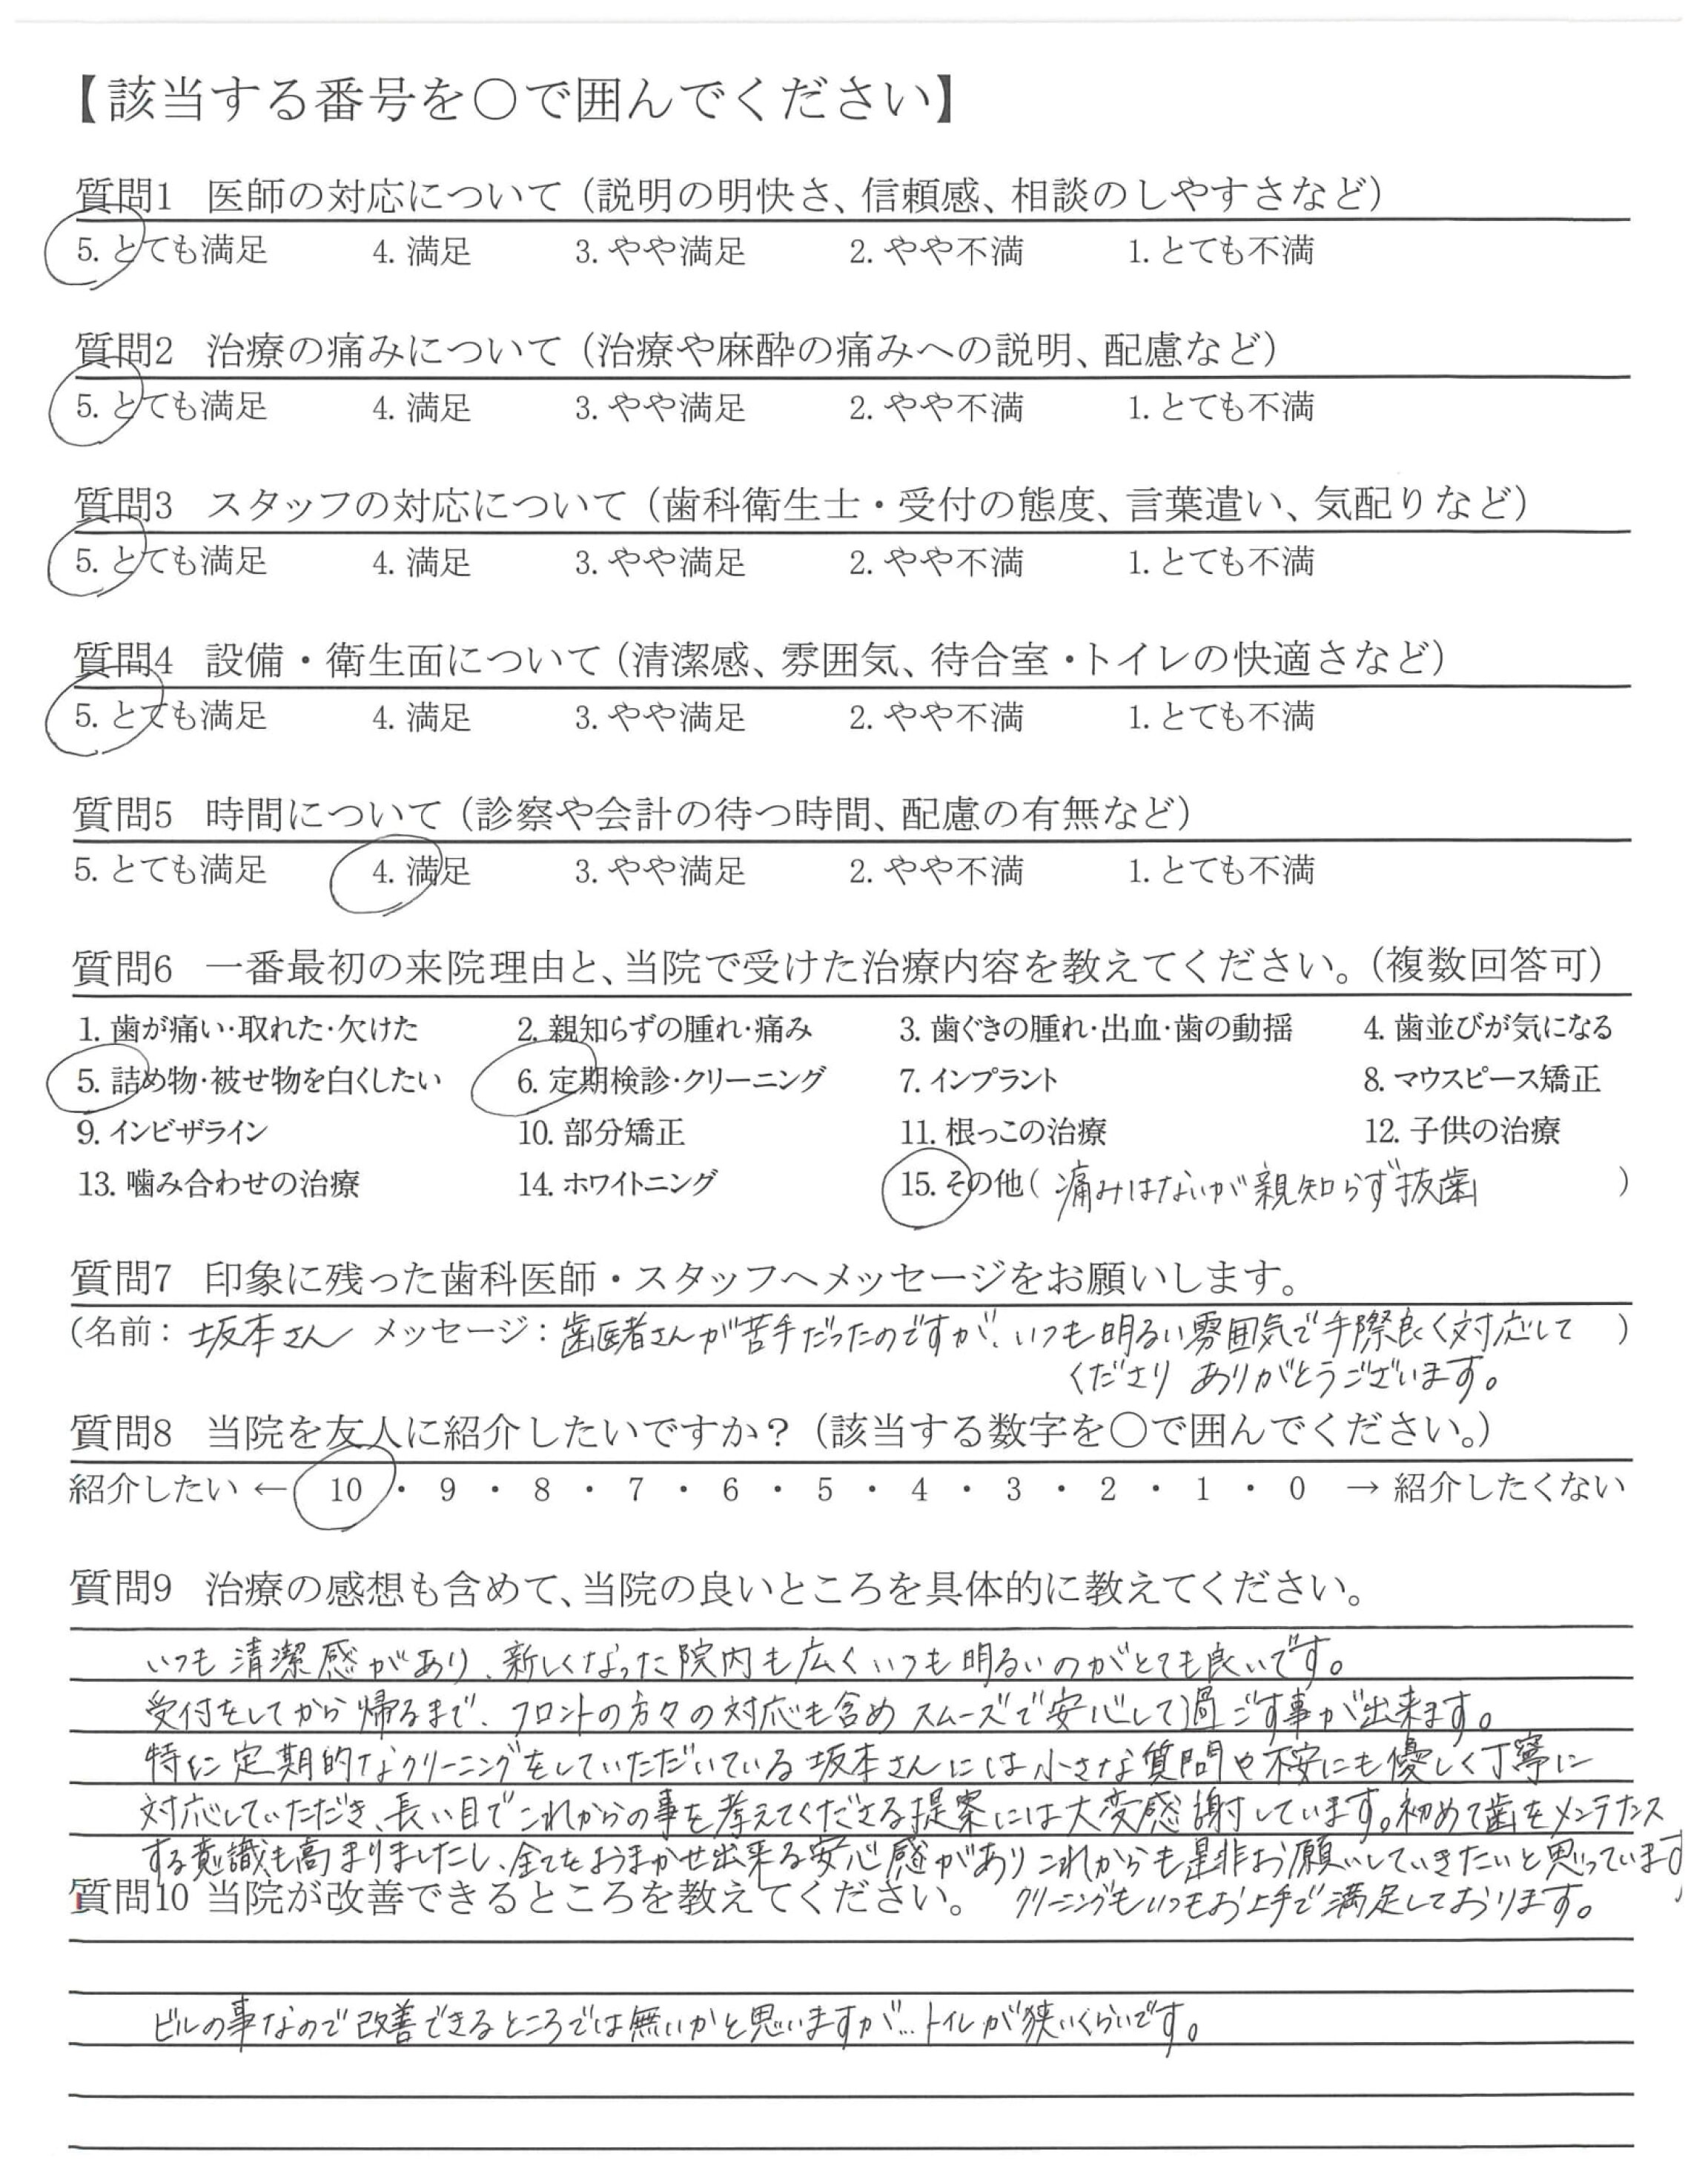 【該当する番号を〇で囲んでください】
質問1 医師の対応について（説明の明快さ、信頼感、相談のしやすさなど）
5. とても満足 4. 満足 3. やや満足 2. やや不満 1. とても不満
質問2 治療の痛みについて（治療や麻酔の痛みへの説明、配慮など）
5. とても満足 4. 満足 3. やや満足 2. やや不満 1. とても不満
質問3 スタッフの対応について（歯科衛生士・受付の態度、言葉遣い、気配りなど）
5. とても満足 4. 満足 3. やや満足 2. やや不満 1. とても不満
質問4 設備・衛生面について（清潔感、雰囲気、待合室・トイレの快適さなど）
5. とても満足 4. 満足 3. やや満足 2. やや不満 1. とても不満
質問5 時間について（診察や会計の待つ時間、配慮の有無など）
5. とても満足 4. 満足 3. やや満足 2. やや不満 1. とても不満
質問6 一番最初の来院理由と、当院で受けた治療内容を教えてください。（複数回答可）
1. 歯が痛い・取れた・欠けた 2. 親知らずの腫れ・痛み 3. 歯ぐきの腫れ・出血・歯の動揺 4. 歯並びが気になる
5. 詰め物・被せ物を白くしたい 6. 定期検診・クリーニング 7. インプラント 8. マウスピース矯正
9. インビザライン 10. 部分矯正 11. 根っこの治療 12. 子供の治療
13. 噛み合わせの治療 14. ホワイトニング 15. その他（ 痛みはないが親知らず抜歯 ）
質問7 印象に残った歯科医師・スタッフへメッセージをお願いします。
（名前：坂本さん メッセージ：歯医者さんが苦手だったのですが、いつも明るい雰囲気で手際良く対応して ）
くださり ありがとうございます。
質問8 当院を友人に紹介したいですか？（該当する数字を〇で囲んでください。）
紹介したい ← 10 ・ 9 ・ 8 ・ 7 ・ 6 ・ 5 ・ 4 ・ 3 ・ 2 ・ 1 ・ 0 → 紹介したくない
質問9 治療の感想も含めて、当院の良いところを具体的に教えてください。
いつも清潔感があり、新しくなった院内も広くいつも明るいのがとても良いです。
受付をしてから帰るまで、フロントの方々の対応も含めスムーズで安心して過ごす事が出来ます。
特に定期的なクリーニングをしていただいている坂本さんには小さな質問や不安にも優しく丁寧に
対応していただき、長い目でこれからの事を考えてくださる提案には大変感謝しています。初めて歯をメンテナンス
する意識も高まりましたし、全てをおまかせ出来る安心感がありこれからも是非お願いしていきたいと思っています
質問10 当院が改善できるところを教えてください。 クリーニングもいつもお上手で満足しております。
ビルの事なので改善できるところでは無いかと思いますが…トイレが狭いくらいです。